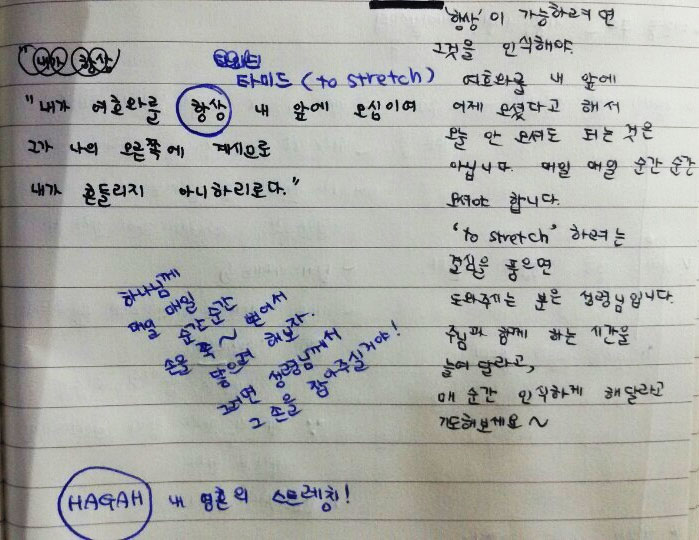 "내가 항상
타미드 (to stretch)
"내가 여호와를 항상 내 앞에 모심이여
그가 나의 오른쪽에 계시므로
내가 흔들리지 아니하리로다."
하나님께
매일 매일
순간 순간 뻗어서
손을 쭉~ 해보자.
뻗으면 성령님께서
그러면 그 손을 잡아주실거야!
HAGAH 내 영혼의 스트레칭!
'항상'이 가능하려면
그것을 인식해야.
여호와를 내 앞에
어제 모셨다고 해서
오늘 안 모셔도 되는 것은
아닙니다. 매일 매일 순간 순간
모셔야 합니다.
'to stretch' 하려는
결심을 품으면
도와주시는 분은 성령님입니다.
주님과 함께 하는 시간을
늘려 달라고,
매 순간 인식하게 해달라고
기도해보세요~